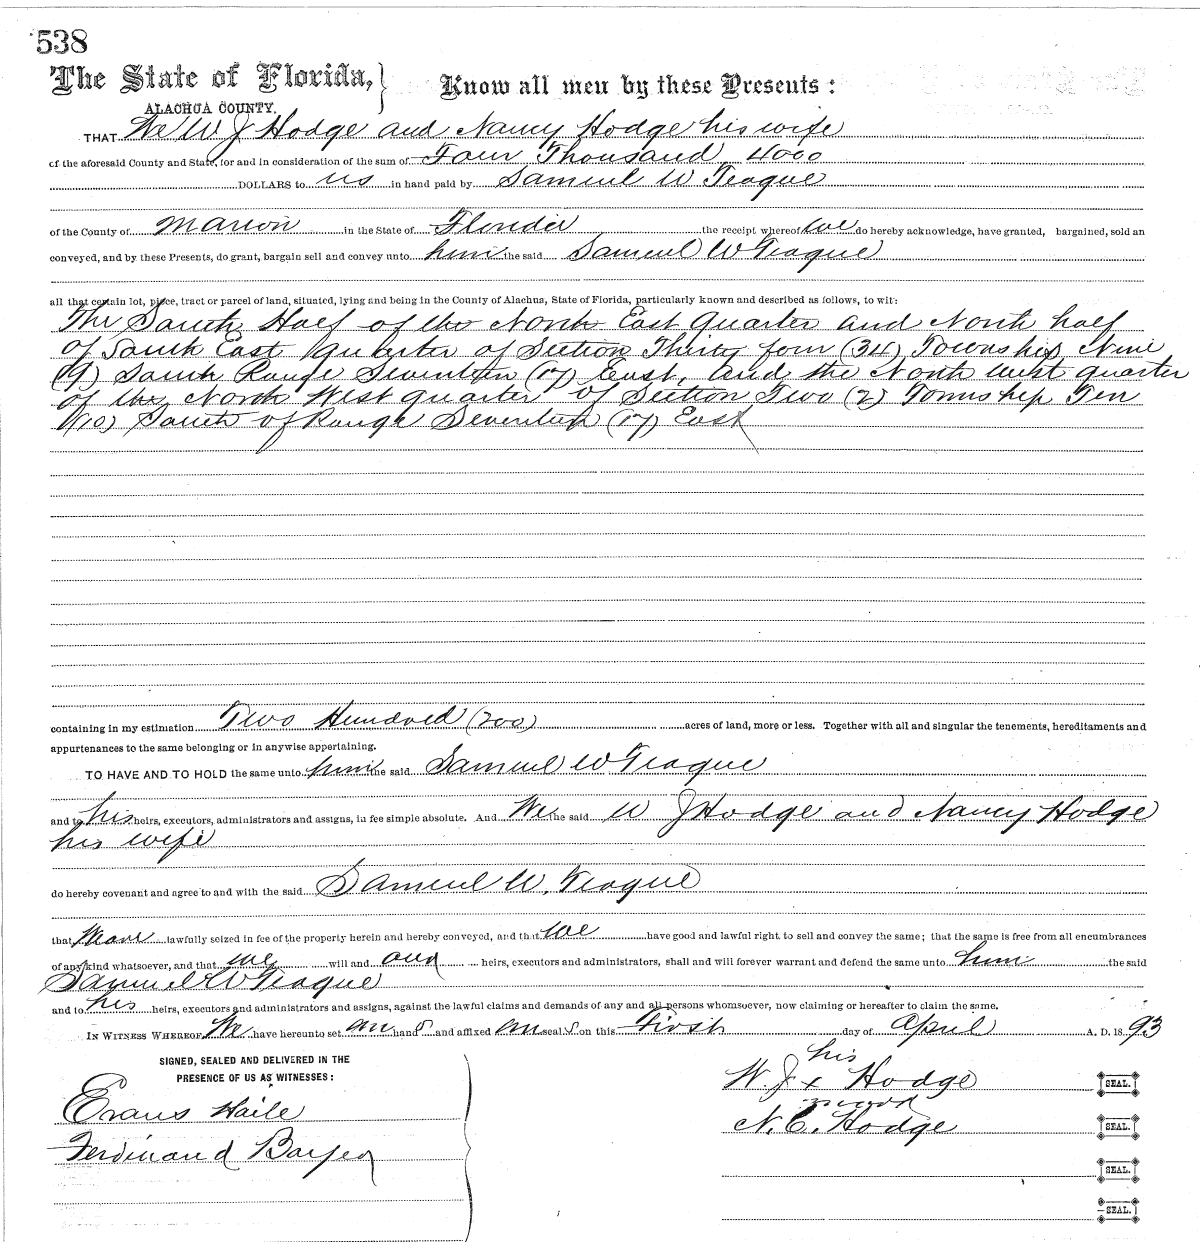 538
The State of Florida, } Know all men by these Presents:
ALACHUA COUNTY.
THAT We W J Hodge and Nancy Hodge his wife
of the aforesaid County and State, for and in consideration of the sum of Four Thousand 4000
DOLLARS to us in hand paid by Samuel W Teague
of the County of Marion in the State of Florida the receipt whereof we do hereby acknowledge, have granted, bargained, sold an
conveyed, and by these Presents, do grant, bargain sell and convey unto him the said Samuel W Teague
all that certain lot, piece, tract or parcel of land, situated, lying and being in the County of Alachua, State of Florida, particularly known and described as follows, to wit:
The South Half of the North East quarter and North half
of South East quarter of Section Thirty four (34) Township Nine
(9) South Range Seventeen (17) East, and the North west quarter
of the North West quarter of Section Two (2) Township Ten
(10) South of Range Seventeen (17) East
containing in my estimation Two Hundred (200) acres of land, more or less. Together with all and singular the tenements, hereditaments and
appurtenances to the same belonging or in anywise appertaining.
TO HAVE AND TO HOLD the same unto him the said Samuel W Teague
and to his heirs, executors, administrators and assigns, in fee simple absolute. And We the said W J Hodge and Nancy Hodge
his wife
do hereby covenant and agree to and with the said Samuel W. Teague
that We are lawfully seized in fee of the property herein and hereby conveyed, and that we have good and lawful right to sell and convey the same; that the same is free from all encumbrances
of any kind whatsoever, and that we will and our heirs, executors and administrators, shall and will forever warrant and defend the same unto him the said
Samuel W Teague
and to his heirs, executors and administrators and assigns, against the lawful claims and demands of any and all persons whomsoever, now claiming or hereafter to claim the same.
IN WITNESS WHEREOF We have hereunto set our hands and affixed our seals on this First day of April A. D. 1893
SIGNED, SEALED AND DELIVERED IN THE
PRESENCE OF US AS WITNESSES:
his
W. J. x Hodge SEAL.
mark
Evans Haile
N. C. Hodge SEAL.
Ferdinand Bayer
SEAL.
SEAL.